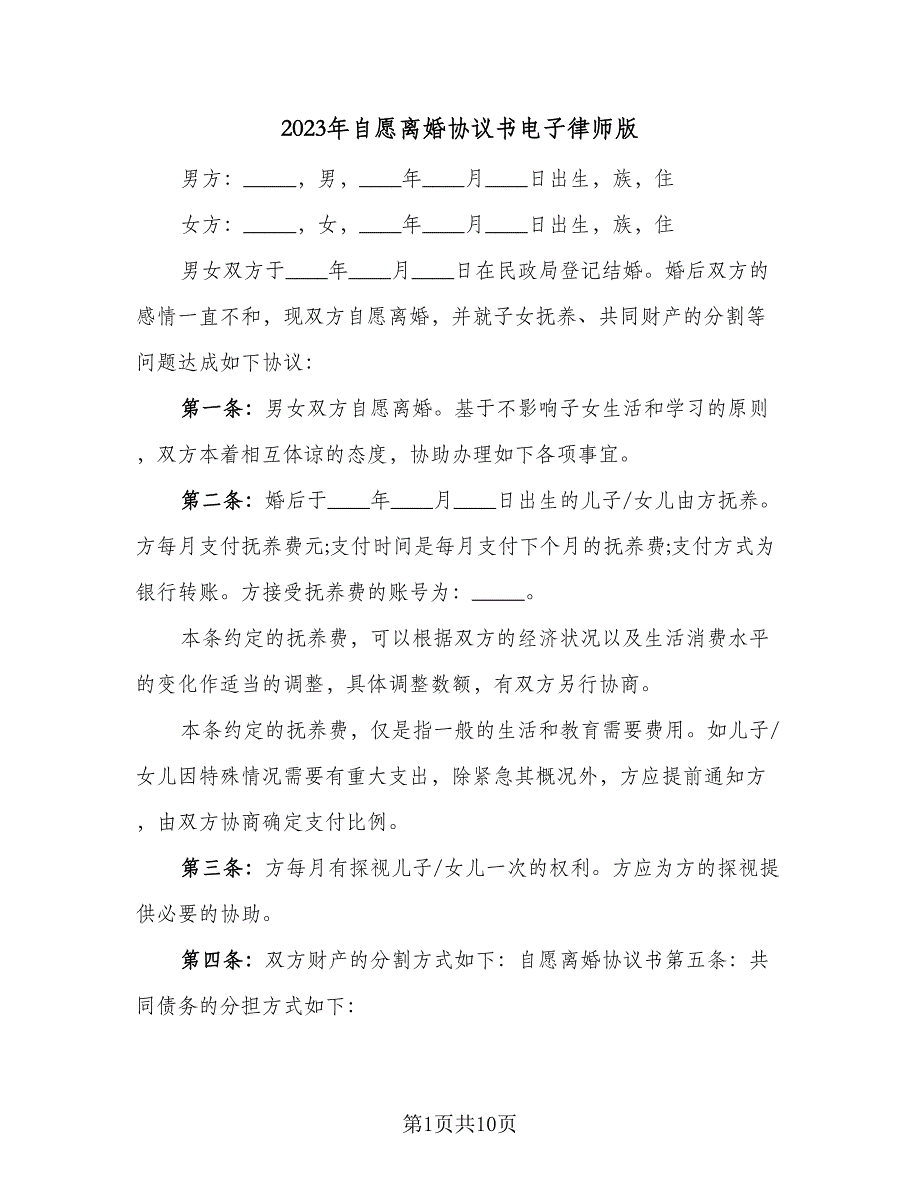 2023年自愿离婚协议书电子律师版
男方：_____，男，____年____月____日出生，族，住
女方：_____，女，____年____月____日出生，族，住
男女双方于____年____月____日在民政局登记结婚。婚后双方的
感情一直不和，现双方自愿离婚，并就子女抚养、共同财产的分割等
问题达成如下协议：
第一条：男女双方自愿离婚。基于不影响子女生活和学习的原则
，双方本着相互体谅的态度，协助办理如下各项事宜。
第二条：婚后于____年____月____日出生的儿子/女儿由方抚养。
方每月支付抚养费元;支付时间是每月支付下个月的抚养费;支付方式为
银行转账。方接受抚养费的账号为：_____。
本条约定的抚养费，可以根据双方的经济状况以及生活消费水平
的变化作适当的调整，具体调整数额，有双方另行协商。
本条约定的抚养费，仅是指一般的生活和教育需要费用。如儿子/
女儿因特殊情况需要有重大支出，除紧急其概况外，方应提前通知方
，由双方协商确定支付比例。
第三条：方每月有探视儿子/女儿一次的权利。方应为方的探视提
供必要的协助。
第四条：双方财产的分割方式如下：自愿离婚协议书第五条：共
同债务的分担方式如下：
第1页共10页